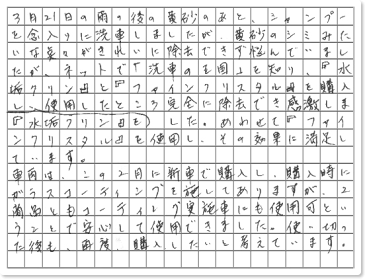 3月21日の雨の後の黄砂のあと、シャンプー
を念入りに洗車しましたが、黄砂のシミみた
いな業々がきれいに除去できず悩んでいまし
たが、ネットで「洗車の王国」を知り、『水
垢クリン』と『ファインクリスタル』を購入
し、使用したところ完全に除去でき感激しま
した。あわせて『ファイ
『水垢クリン』を
ンクリスタル』を使用し、その効果に満足し
ています。
車両は、この2月に新車で購入し、購入時に
ガラスコーティングを施してありますが、2
商品ともコーティング実施車にも使用可とい
うことで安心して使用できました。使い切っ
た後も、再度、購入したいと考えています。